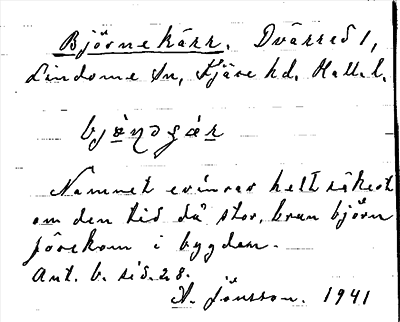 Björnekärr. Dvärred 1,
Lindome sn, Fjäre hd. Hall. l.
Namnet erinrar helt säkert
om den tid då stor, brun björn
förekom i bygden.
Ant. b. sid. 28.
A. Jönsson. 1941